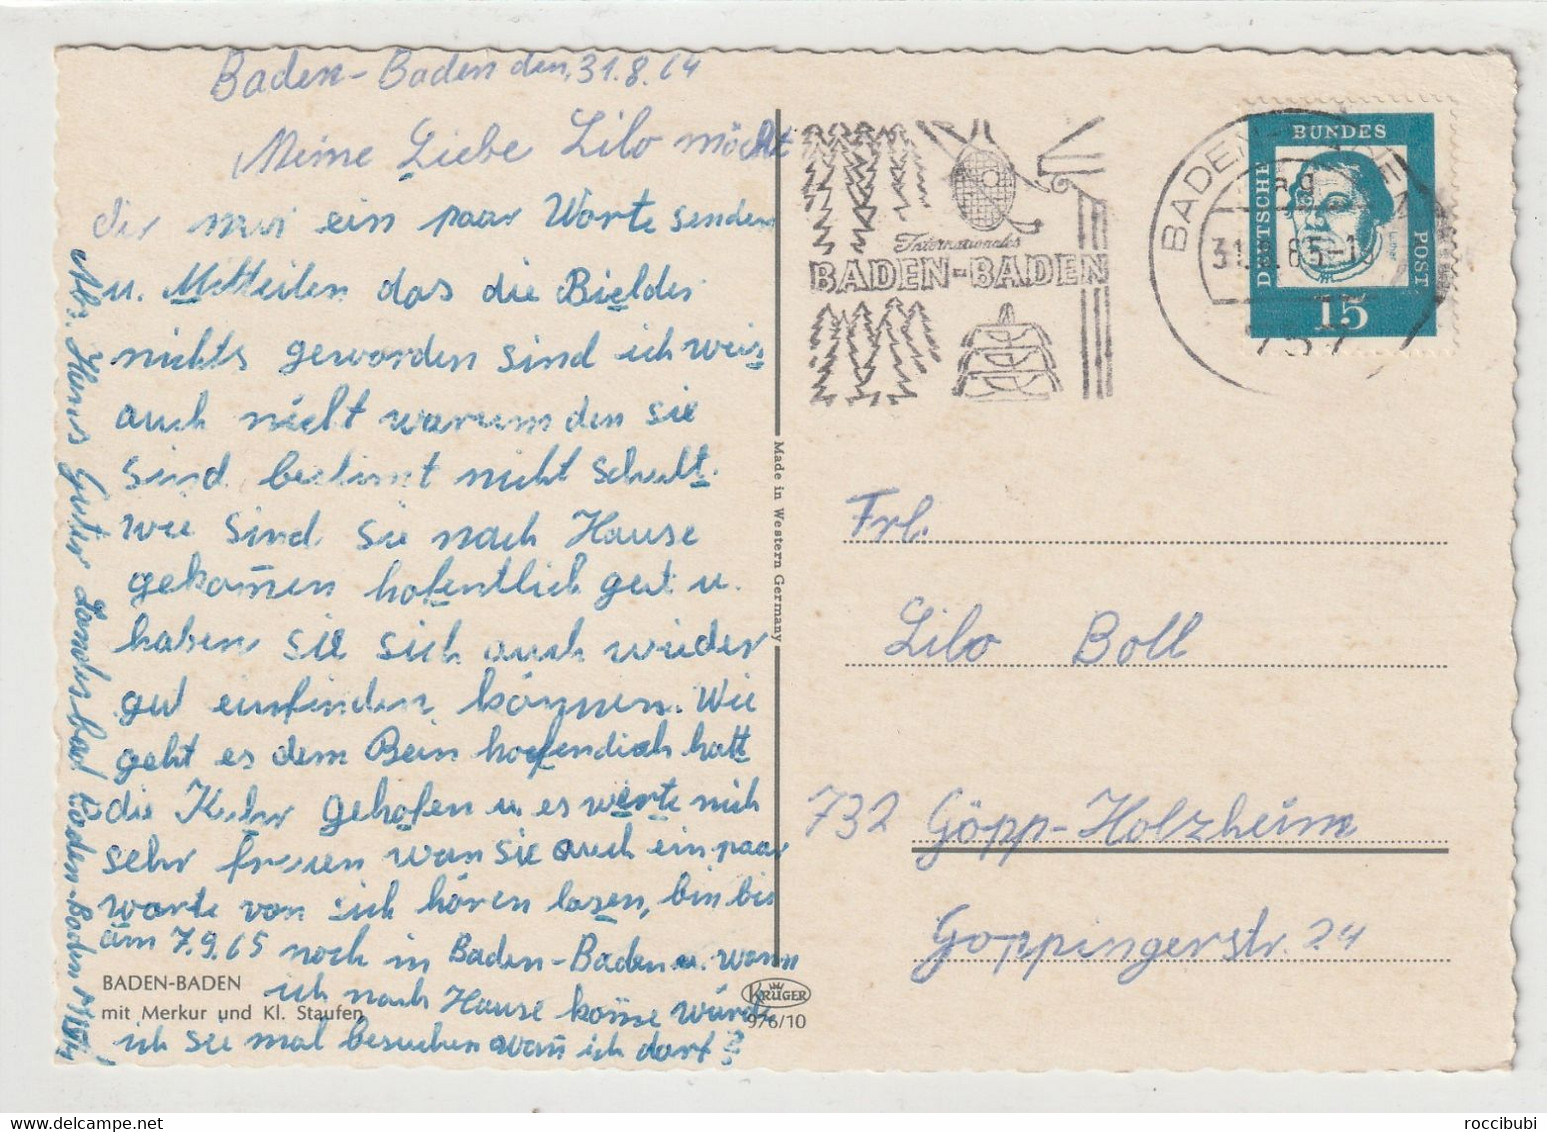 Baden-Baden den, 31.8.64
Meine Liebe Lilo möcht
dir nur ein paar Worte senden
u. Mitteilen das die Bielder
nichts geworden sind ich weis
auch nicht warum den sie
sind bestimt nicht schult.
wie sind sie nach Hause
gekom̄en hofentlich gut u.
haben sie sich auch wieder
gut einfinden können. Wie
geht es dem Bein hoefendlich hatt
die Kuhr gehofen u es wërte mich
sehr freuen wan sie auch ein paar
worte von sich hören lasen, bin bis
am 7.9.65 noch in Baden-Baden u. wann
ich nach Hause kom̄e würde
ich sie mal besuchen wan̄ ich darf?
Abs. Heinz Guter Landesbad Baden-Baden
BADEN-BADEN
mit Merkur und Kl. Staufen
Made in Western Germany
KRÜGER
976/10
Internationales
BADEN-BADEN
BADEN-BADEN
ag
31.8.65-1
757
DEUTSCHE
BUNDES
POST
15
Frl.
Lilo Boll
732 Göpp-Holzheim
Göppingerstr. 24
roccibubi